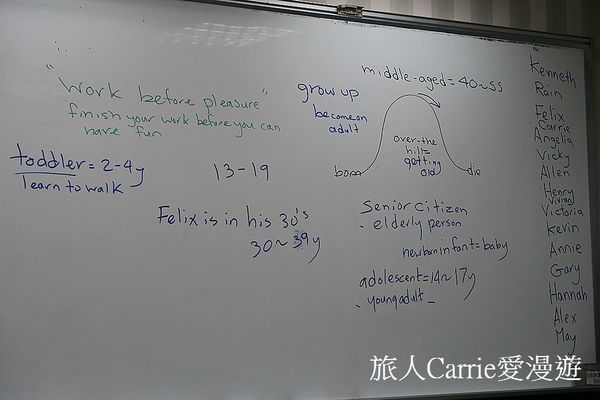 "Work before pleasure"
finish your work before you can
have fun
toddler = 2-4y
learn to walk
13-19
Felix is in his 30's
30~39y
grow up
become an
adult
middle-aged = 40~55
over-the
hill=
getting
old
born
die
Senior Citizen
- elderly person
newborn infant = baby
adolescent = 14~17y
- young adult -
Kenneth
Rain
Felix
Carrie
Angelia
Vicky
Allen
Henry
Vivian
Victoria
Kevin
Annie
Gary
Hannah
Alex
May
旅人Carrie愛漫遊